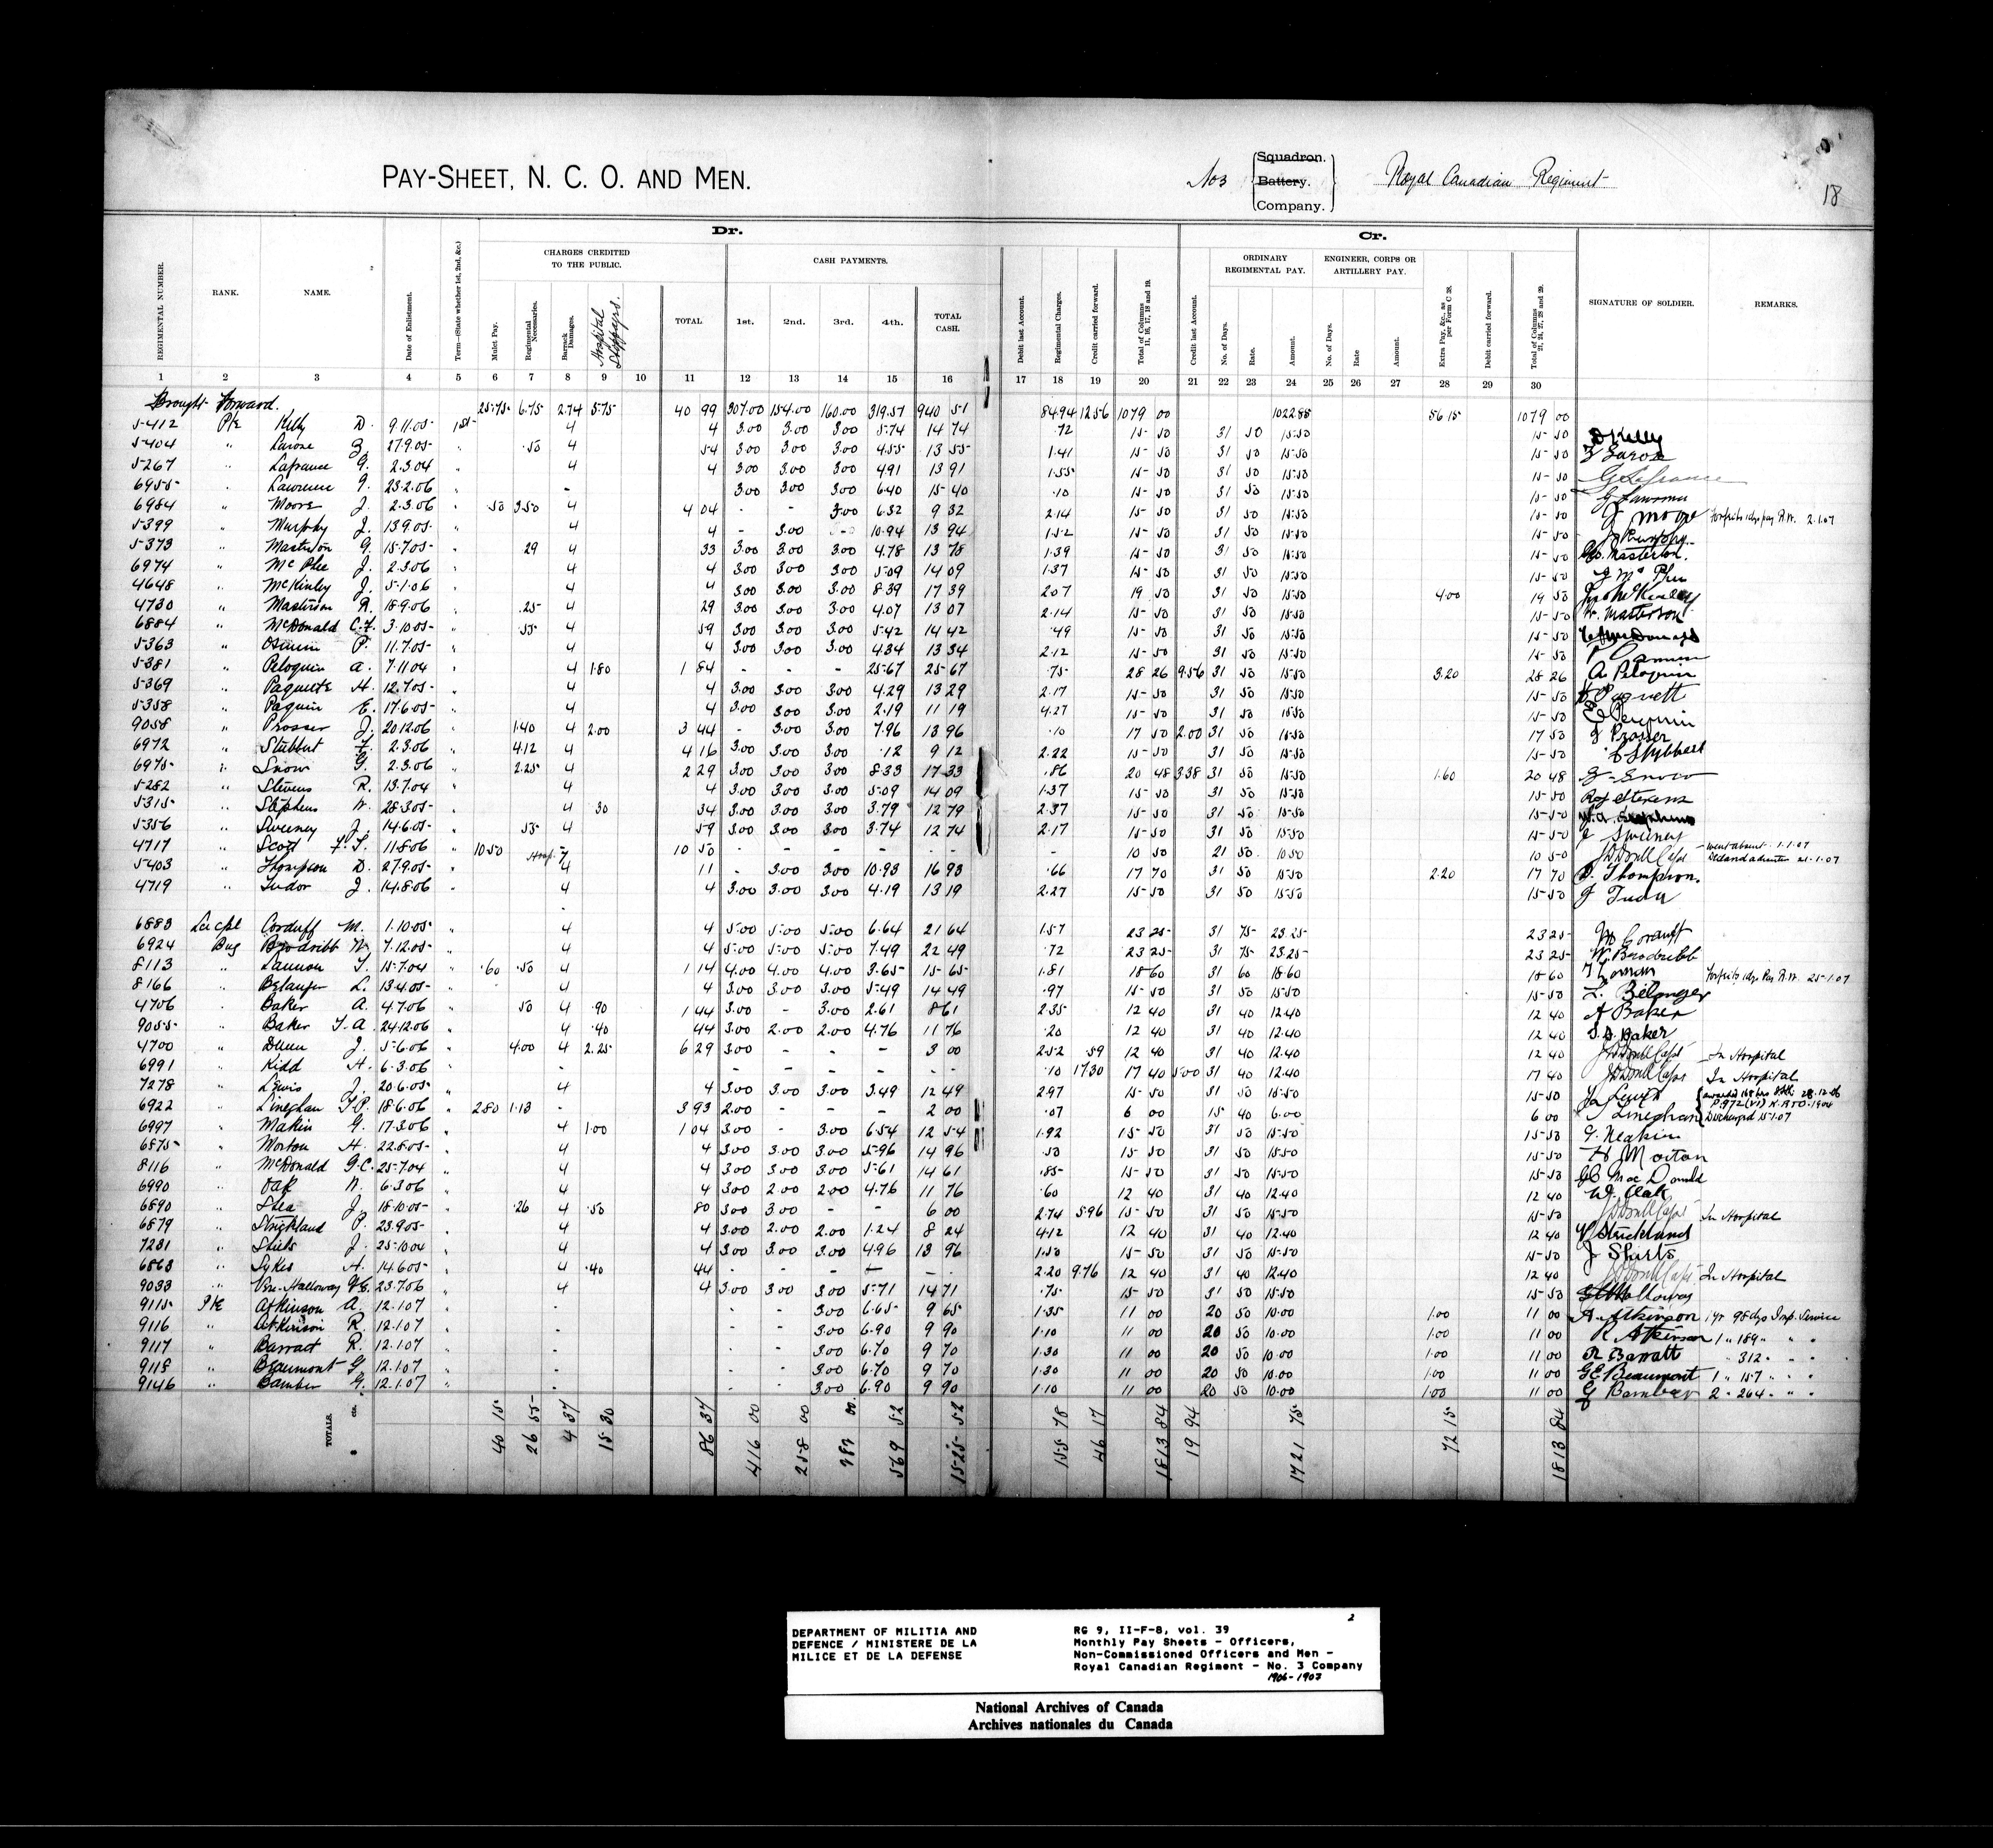 PAY-SHEET, N. C. O. AND MEN.
No 3 Squadron. Battery. Company. Royal Canadian Regiment
18
Dr. Cr.
CHARGES CREDITED TO THE PUBLIC. CASH PAYMENTS. ORDINARY REGIMENTAL PAY. ENGINEER, CORPS OR ARTILLERY PAY.
REGIMENTAL NUMBER. RANK. NAME. Date of Enlistment. Term—(State whether 1st, 2nd, &c.) Mulct Pay. Regimental Necessaries. Barrack Damages. Hospital Stoppages. TOTAL 1st. 2nd. 3rd. 4th. TOTAL CASH. Debit last Account. Regimental Charges. Credit carried forward. Total of Columns 11, 16, 17, 18 and 19. Credit last Account. No. of Days. Rate. Amount. No. of Days. Rate Amount. Extra Pay, &c., as per Form C 38. Debit carried forward. Total of Columns 21, 24, 27, 28 and 29. SIGNATURE OF SOLDIER. REMARKS.
1 2 3 4 5 6 7 8 9 10 11 12 13 14 15 16 17 18 19 20 21 22 23 24 25 26 27 28 29 30
Brought Forward. 25.75 6.75 2.74 5.75 40 99 307.00 154.00 160.00 319.57 940 51 84.94 12.56 1079 00 1022.85 56 15 1079 00
5412 Pte Kelly D. 9.11.05 1st 4 4 3.00 3.00 3.00 5.74 14 74 .72 15 50 31 50 15.50 15 50 D Kelly
5404 " Larose Z. 27.9.05 " .50 4 54 3.00 3.00 3.00 4.55 13 55 1.41 15 50 31 50 15.50 15 50 Z Larose
5267 " Lafrance G. 2.3.04 " 4 4 3.00 3.00 3.00 4.91 13 91 1.55 15 50 31 50 15.50 15 50 G Lafrance
6955 " Lawrence G. 23.2.06 " - 3.00 3.00 3.00 6.40 15 40 .10 15 50 31 50 15.50 15 50 G Lawrence
6984 " Moore J. 2.3.06 " .50 3.50 4 4 04 - - 3.00 6.32 9 32 2.14 15 50 31 50 15.50 15 50 J Moore Forfeits 1 dys pay R.W. 2.1.07
5399 " Murphy J. 13.9.05 " 4 4 - 3.00 - 10.94 13 94 1.52 15 50 31 50 15.50 15 50 J Murphy
5373 " Masterson G. 15.7.05 " 29 4 33 3.00 3.00 3.00 4.78 13 78 1.39 15 50 31 50 15.50 15 50 Geo. Masterton.
6974 " McPhee J. 2.3.06 " 4 4 3.00 3.00 3.00 5.09 14 09 1.37 15 50 31 50 15.50 15 50 J McPhee
4648 " McKinley J. 5.1.06 " 4 4 3.00 3.00 3.00 8.39 17 39 2.07 19 50 31 50 15.50 4.00 19 50 McKinley
4730 " Masterson R. 18.9.06 " .25 4 29 3.00 3.00 3.00 4.07 13 07 2.14 15 50 31 50 15.50 15 50 R. Masterson
6884 " McDonald C.F. 3.10.05 " .55 4 59 3.00 3.00 3.00 5.42 14 42 .49 15 50 31 50 15.50 15 50
5363 " P. 11.7.05 " 4 4 3.00 3.00 3.00 4.34 13 34 2.12 15 50 31 50 15.50 15 50
5381 " Peloquin A. 7.11.04 4 1.80 1 84 - - - 25.67 25 67 .75 28 26 9.56 31 50 15.50 3.20 28 26 A Peloquin
5369 " Paquette H. 12.7.05 " 4 4 3.00 3.00 3.00 4.29 13 29 2.17 15 50 31 50 15.50 15 50 H Paquett
5358 " Paquin E. 17.6.05 " 4 4 3.00 3.00 3.00 2.19 11 19 4.27 15 50 31 50 15.50 15 50 E Paquin
9058 " Prosser J. 20.12.06 " 1.40 4 2.00 3 44 - 3.00 3.00 7.96 13 96 .10 17 50 2.00 31 50 15.50 17 50 J Prosser
6972 " Stubbert F. 2.3.06 " 4.12 4 4 16 3.00 3.00 3.00 .12 9 12 2.22 15 50 31 50 15.50 15 50 Stubbert
6975 " Snow G. 2.3.06 " 2.25 4 2 29 3.00 3.00 3.00 8.33 17 33 .86 20 48 3.38 31 50 15.50 1.60 20 48 G Snow
5282 " Stevens R. 13.7.04 " 4 4 3.00 3.00 3.00 5.09 14 09 1.37 15 50 31 50 15.50 15 50 Roy Stevens
5315 " Stephens W. 28.3.05 " 4 30 34 3.00 3.00 3.00 3.79 12 79 2.37 15 50 31 50 15.50 15 50 W.A. Stephens
5356 " Sweeney J. 14.6.05 " .55 4 59 3.00 3.00 3.00 3.74 12 74 2.17 15 50 31 50 15.50 15 50 J Sweeney
4717 " Scott F.T. 11.8.06 " 10 50 - 10 50 - - - - - - - 10 50 21 50 10.50 10 50 Went absent 1.1.07 Declared deserter 21.1.07
5403 " Thompson D. 27.9.05 " Hosp. 7 4 11 - 3.00 3.00 10.93 16 93 .66 17 70 31 50 15.50 2.20 17 70 D. Thompson.
4719 " Tudor J. 14.8.06 " 4 4 3.00 3.00 3.00 4.19 13 19 2.27 15 50 31 50 15.50 15 50 J Tudor
6883 Lce Cpl Corduff M. 1.10.05 " 4 4 5.00 5.00 5.00 6.64 21 64 1.57 23 25 31 75 23.25 23 25 M Corduff
6924 Bug Brodribb W. 7.12.05 " 4 4 5.00 5.00 5.00 7.49 22 49 .72 23 25 31 75 23.25 23 25 W. Brodribb
8113 " Lannon T. 15.7.04 " .60 .50 4 1 14 4.00 4.00 4.00 3.65 15 65 1.81 18 60 31 60 18.60 18 60 Forfeits 1 dys Pay R.W. 25.1.07
8166 " Belanger L. 13.4.05 " 4 4 3.00 3.00 3.00 5.49 14 49 .97 15 50 31 50 15.50 15 50 L. Belanger
4706 " Baker A. 4.7.06 " 50 4 .90 1 44 3.00 - 3.00 2.61 8 61 2.35 12 40 31 40 12.40 12 40 A Baker
9055 " Baker T.A. 24.12.06 " 4 .40 44 3.00 2.00 2.00 4.76 11 76 .20 12 40 31 40 12.40 12 40 T.A. Baker
4700 " Dunn J. 5.6.06 " 4.00 4 2.25 6 29 3.00 - - - 3 00 2.52 .59 12 40 31 40 12.40 12 40 In Hospital
6991 " Kidd H. 6.3.06 " - - - - - - - - .10 17.30 17 40 5.00 31 40 12.40 17 40 In Hospital
7278 " Lewis J. 20.6.05 " 4 4 3.00 3.00 3.00 3.49 12 49 2.97 15 50 31 50 15.50 15 50 Jas Lewis
6922 " Lineghan T.P. 18.6.06 " 2.80 1.13 - 3 93 2.00 - - - 2 00 .07 6 00 15 40 6.00 6 00 Lineghan 28.12.06 P 972 (VI) K.R. & O. 1904 Discharged 15.1.07
6997 " Makin G. 17.3.06 " 4 1.00 1 04 3.00 - 3.00 6.54 12 54 1.92 15 50 31 50 15.50 15 50 G. Meakin
6875 " Morton H. 22.8.05 " 4 4 3.00 3.00 3.00 5.96 14 96 .50 15 50 31 50 15.50 15 50 H Morton
8116 " McDonald G.C. 25.7.04 " 4 4 3.00 3.00 3.00 5.61 14 61 .85 15 50 31 50 15.50 15 50 GC MacDonald
6990 " Oak W. 6.3.06 " 4 4 3.00 2.00 2.00 4.76 11 76 .60 12 40 31 40 12.40 12 40 W. Oak
6890 " Shea J. 18.10.05 " .26 4 .50 80 3.00 3.00 - - 6 00 2.74 5.96 15 50 31 50 15.50 15 50 In Hospital
6879 " Strickland P. 23.9.05 " 4 4 3.00 2.00 2.00 1.24 8 24 4.12 12 40 31 40 12.40 12 40 P Strickland
7281 " J. 25.10.04 " 4 4 3.00 3.00 3.00 4.96 13 96 1.50 15 50 31 50 15.50 15 50 J
6868 " Sykes H. 14.6.05 " 4 .40 44 - - - - - 2.20 9.76 12 40 31 40 12.40 12 40 In Hospital
9033 " Holloway 23.7.06 " 4 4 3.00 3.00 3.00 5.71 14 71 .75 15 50 31 50 15.50 15 50 Holloway
9115 Pte Atkinson A. 12.1.07 " - - - 3.00 6.65 9 65 1.35 11 00 20 50 10.00 1.00 11 00 A. Atkinson 1 yr 98 dys Imp. Service
9116 " Atkinson R. 12.1.07 " - - - 3.00 6.90 9 90 1.10 11 00 20 50 10.00 1.00 11 00 R Atkinson 1 " 189 " " "
9117 " Barratt R. 12.1.07 " - - - 3.00 6.70 9 70 1.30 11 00 20 50 10.00 1.00 11 00 R Barratt " 312 " " "
9118 " Beaumont G. 12.1.07 " - - - 3.00 6.70 9 70 1.30 11 00 20 50 10.00 1.00 11 00 GE Beaumont 1 " 157 " " "
9146 " Bamber G. 12.1.07 " - - - 3.00 6.90 9 90 1.10 11 00 20 50 10.00 1.00 11 00 G Bamber 2 " 264 " " "
TOTALS. $ cts. 40 15 26 55 4 37 15 30 86 37 416 00 258 00 282 00 569 52 1525 52 155 78 46 17 1813 84 19 94 1721 75 72 15 1813 84
2
DEPARTMENT OF MILITIA AND
DEFENCE / MINISTERE DE LA
MILICE ET DE LA DEFENSE
RG 9, II-F-8, vol. 39
Monthly Pay Sheets - Officers,
Non-Commissioned Officers and Men -
Royal Canadian Regiment - No. 3 Company
1906-1907
National Archives of Canada
Archives nationales du Canada